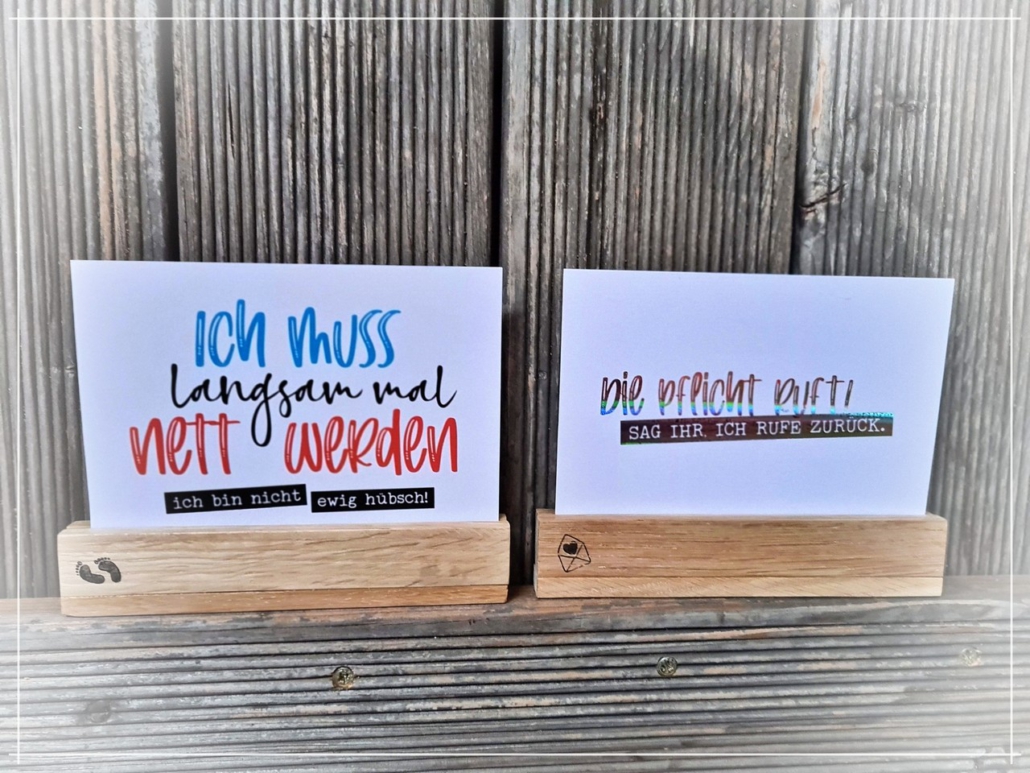 Ich muss
langsam mal
nett werden
ich bin nicht ewig hübsch!
Die Pflicht ruft!
SAG IHR, ICH RUFE ZURÜCK.